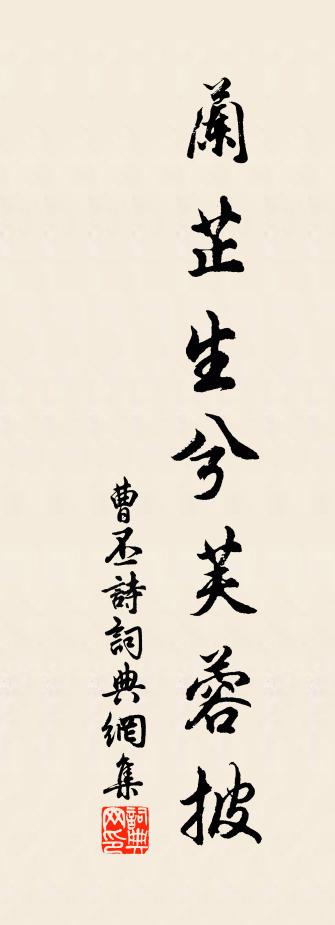 蘭芷生兮芙蓉披
曹丕詩詞典網集
詞典網印